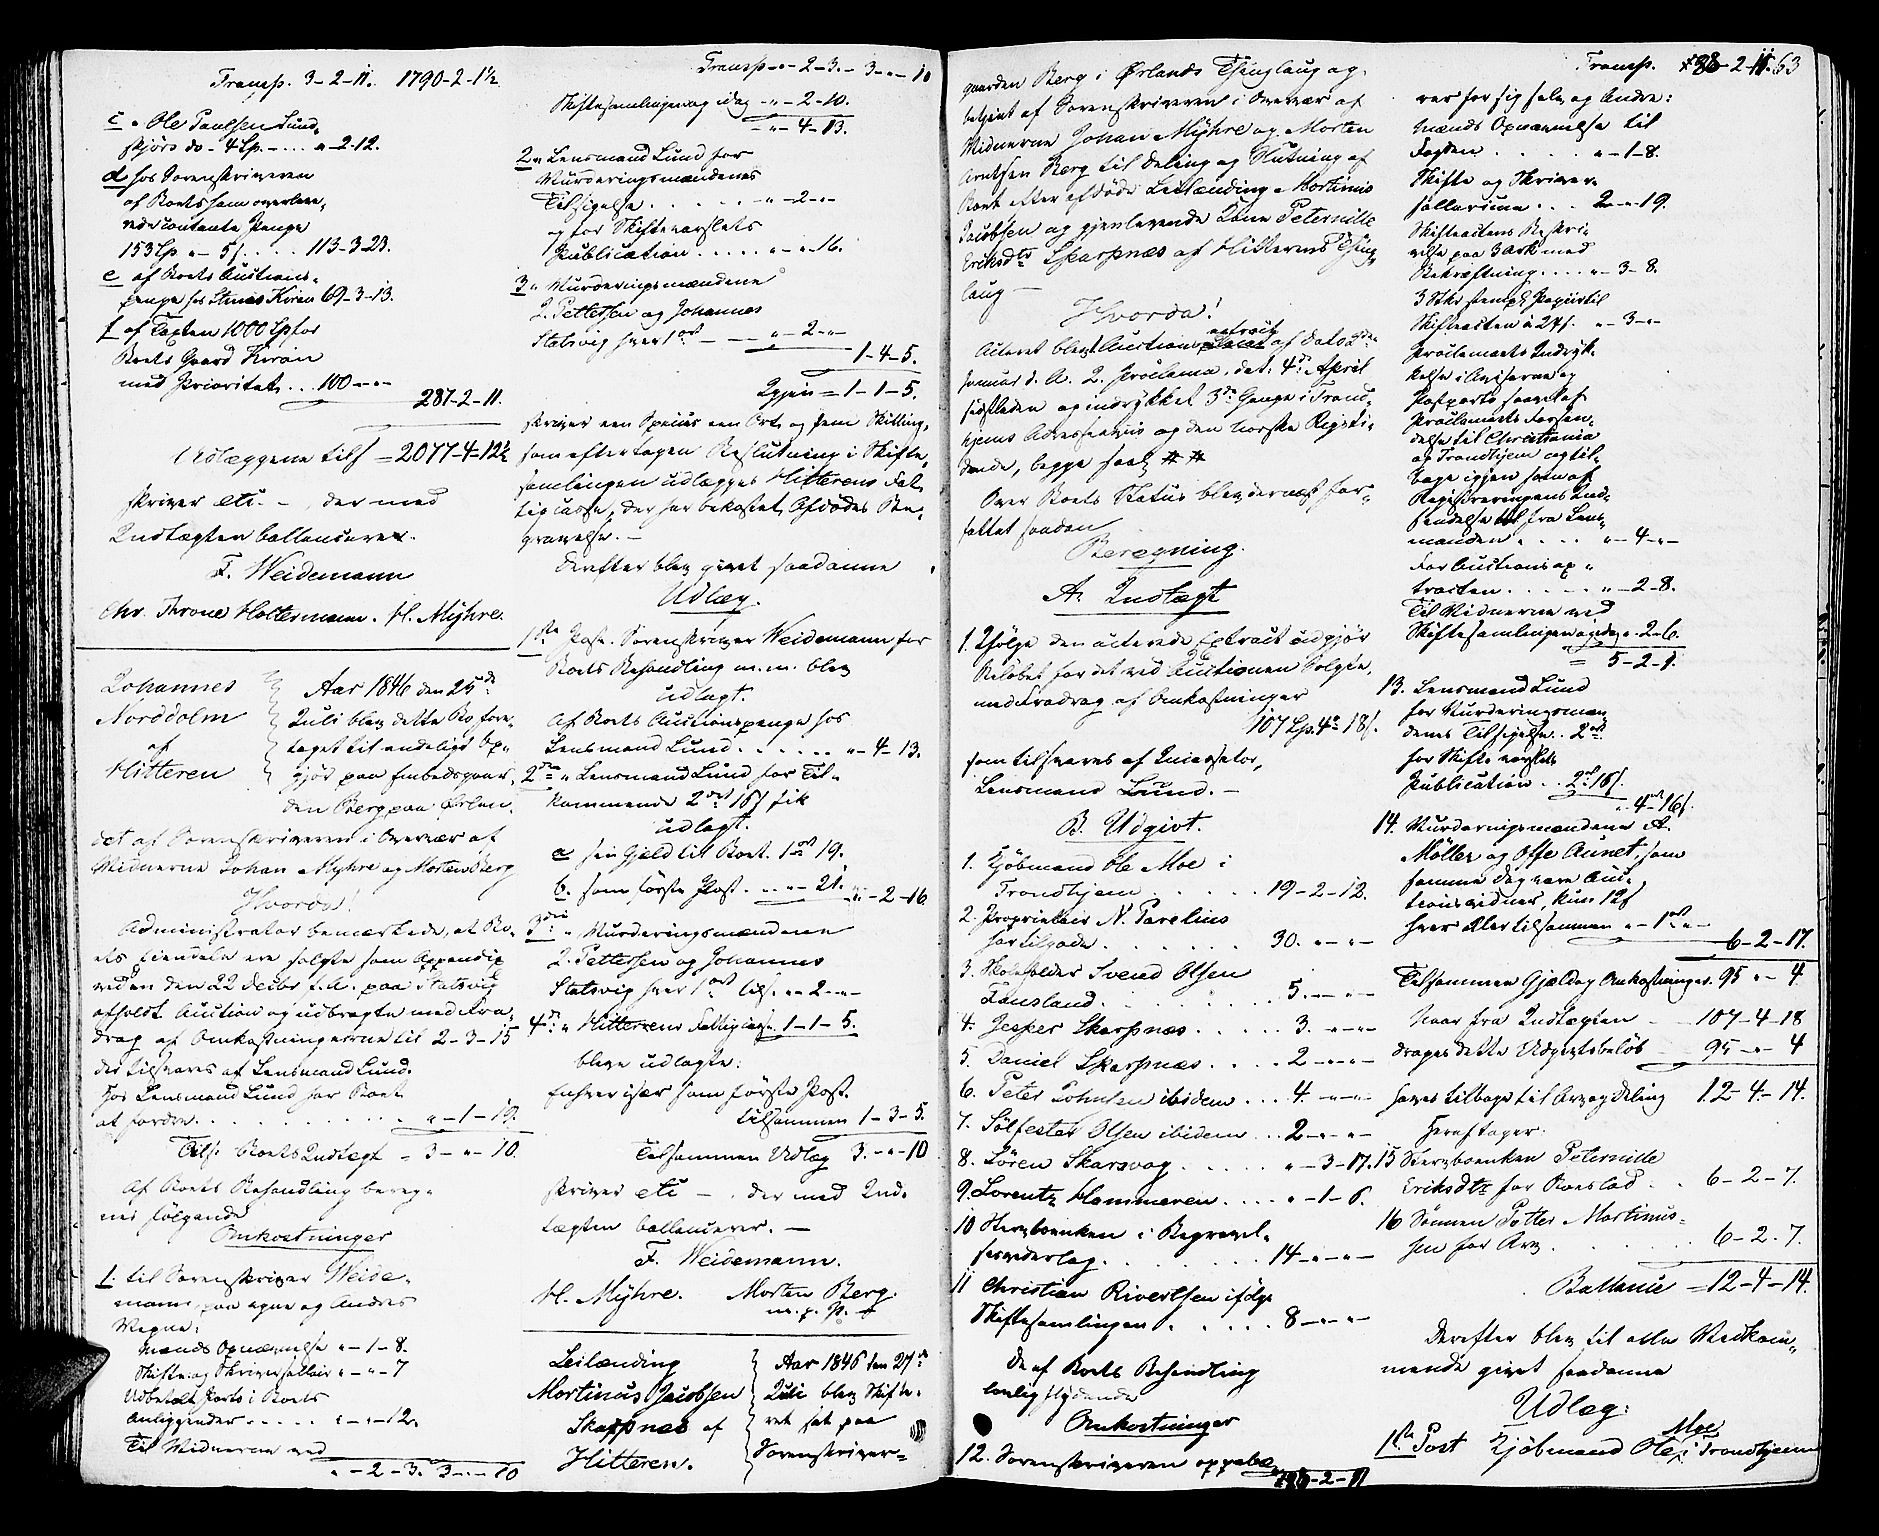 Transp. 3-2-11. 1790-2-1½
c. Ole Paulsen Lund,
skjørs do - 4 Sp. - ... "-2-12.
d hos Sorenskriveren
af Boets ham overleve,
rede contante Penge
153 Sp "- 5 s. ... 113-3-23.
e af Boets Auctions-
penge hos Kirøn 69-3-13.
f af Taxten 1000 Sp for
Boets Gaard Kirøn
med Prioritet .. 100-"-"
287-2-11.
Udlæggene tils = 2077-4-12½
skriver etc. - , der med
Indtægten ballancerer.
F. Weidemann
Chr. Throne Holtermann. H. Myhre.
Johannes
Norddolm
af
Hitteren
Aar 1846 den 25de
Juli blev dette Bo fore-
taget til endeligt Op-
gjør paa Embedsgaar-
den Berg paa Ørlan-
det af Sorenskriveren i Overvær af
Vidnerne Johan Myhre og Morten Berg
Hvorda!
Administrator bemærkede, at Bo-
ets Eiendele ere solgte som Appendix
ved en den 22 Decbr f. A. paa Statsvig
afholdt Auction og udbragte med Fra-
drag af Omkostningerne til 2-3-15
der tilsvares af Lensmand Lund.
Hos Lensmand Lund har Boet
at fordre. . . . . . . . "-1-19.
Tils. Boets Indtægt = 3-"-10.
Af Boets Behandling bereg-
nes følgende
Omkostninger
1. til Sorenskriver Weide-
mann, paa egne og Andres
Vegne:
Mænds Opnævnelse "-1-8.
Skifte og Skriversallair "-"-7
Udbetalt Porto i Boets
Anliggender ..... "-"-12.
Til Vidnerne ved
"-2-3. 3-"-10
Transp "-2-3. 3-"-10
Skiftesamlingen og idag "-"-2-10.
"-4-13.
2. Lensmand Lund for
Vurderingsmændenes
Tilsigelse . . . . . "-2-"
og for Skiftevarslets
Publication ..... "-"-16.
3. Vurderingsmændene
J. Pettersen og Johannes
Statsvig hver 1 ort - - "-2-"
1-4-5.
Igjen = 1-1-5.
skriver een Species een Ort og fem Skilling,
som efter tagen Beslutning i Skifte-
samlingen udlægges Hitterens Fat-
tigcasse, der har bekostet Afdødes Be-
gravelse. -
Derefter blev givet saadanne
Udlæg.
1ste Post. Sorenskriver Weidemann for
Boets Behandling m.m. blev
udlagt.
Af Boets Auctionspenge hos
Lensmand Lund. . . . . . "-4-13.
2den " Lensmand Lund for Til-
kommende 2 ort 16 s fik
udlagt.
a sin Gjeld til Boet. 1 ort 19.
b. som første Post. . . "-21. "-2-16
3die " Vurderingsmændene
J. Pettersen og Johannes
Statsvig hver 1 ort tils. "-2-"
4de " Hitterens Fattigcasse 1-1-5.
bleve udlagte:
Enhver især som første Post.
tilsammen 1-3-5.
Tilsammen Udlæg 3-"-10
skriver etc - , der med Ind-
tægten ballancerer. -
F. Weidemann.
H. Myhre. Morten Berg.
m. p. P.
Leilænding
Mortinus Jacobsen
Skarpnæs af
Hitteren.
Aar 1846 den 27de
Juli blev Skifte-
ret sat paa
Sorenskriver-
gaarden Berg i Ørlands Thinglaug og
betjent af Sorenskriveren i Overvær af
Vidnerne Johan Myhre og Morten
Arntsen Berg til Deling og Slutning af
Boet efter afdøde Leilænding Mortinus
Jacobsen og gjenlevende Kone Peternille
Eriksdtr Skarpnæs af Hitterens Thing-
laug -
Hvorda!
Acteret blev 1 Auctionsextract af Dato 2den
Januar d. A. 2. Proclama, dat: 4de April
sidstleden og indrykket 3de Gange i Trond-
hjems Adresseavis og den norske Rigsti-
dende, begge saal.
Over Boets Status blev dernæst for-
fattet saadan
Beregning.
A. Indtægt
1. Ifølge den acterede Extract udgjør
Beløbet for det ved Auctionen Solgte,
med Fradrag af Omkostninger
107 Sp. 4 ort 18 s.
som tilsvares af Incassator,
Lensmand Lund. -
B. Udgivt.
1. Kjøbmand Ole Moe i
Trondhjem . . . . . 19-2-12.
2. Proprietair N. Parelius
. . . . . . . 30. "-"
3. Skoleholder Svend Olsen
Fansland. . . . . . . 5. "-"
4. Jesper Skarpnæs . . . . . 3. "-"
5. Daniel Skarpnæs. . . . . 2-"-"
6. Peter Johnsen ibidem ... 4-"-"
7. Sølfester Olsen ibidem ... 2-"-"
8. Søren Skarsvog . . . . . "-3-17.
9. Lorentz Hammeren .... "-1-6.
10 Stervboenken i Begravel-
sesvederlag. . . . . . 14-"-"
11 Christian Rivertsen ifølge
Skiftesamlingen . . . . . 8-"-"
De af Boets Behandling
lovlig flydende
Omkostninger
12. Sorenskriveren oppebæ-
86-2-11
Transp. 86-2-11. 63
rer for sig selv og Andre:
Mænds Opnævnelse til
Fogden . . . . . "-1-8.
Skifte og Skriver-
sallarium . . . 2-"-19.
Skifteactens Beskri-
velse paa 3 Ark med
Bekræftning . . . . "-3-8.
3 Stkr stempl. Papiir til
Skifteacten à 24 s. "-3-"
Proclamaets Indryk-
kelse i Aviserne og
Postporto saavel af
Proclamaets Forsen-
delse til Christiania
og Trondhjem og til-
bage igjen som af
Registreringens Ind-
sendelse fra Lens-
manden . . . . "-4-"
For Auctionsop-
tracten . . . . . "-2-8.
Til Vidnerne ved
Skiftesamlingen og idag "-2-6.
= 5-2-1.
13. Lensmand Lund
for Vurderingsmæn-
denes Tilsigelse .. 2 ort
for Skiftevarslets
Publication .. 2 ort 16 s.
"4 ort 16 s.
14. Vurderingsmændene A.
Möller og Offe Aunet, som
samme Dag vare Auc-
tionsvidner, kun 12 s
hver eller tilsammen "-1 ort-"
6-2-17.
Tilsammen Gjæld og Omkostninger. 95 "-4
Naar fra Indtægten - 107-4-18
drages dette Udgivtsbeløb 95-"-4
haves tilbage til Arv og Deling 12-4-14.
Heraf tager:
15 Stervboenken Peternille
Eriksdtr for Boeslod . . 6-2-7.
16 Sønnen Petter Mortinus-
sen for Arv . . . . . . 6-2-7.
Ballance = 12-4-14.
Derefter blev til alle Vedkom-
mende givet saadanne
Udlæg:
1ste Post Kjøbmand Ole Moe i Trondhjem